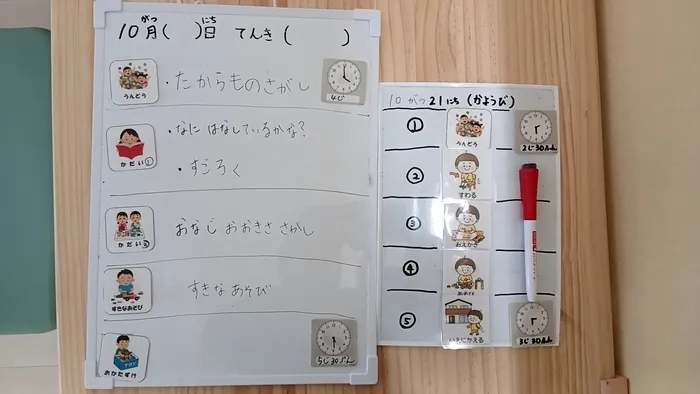 10月(がつ)( )日(にち) てんき( )
うんどう ・たからものさがし 4じ
かだい① ・なに はなしているかな?
・すごろく
かだい② おなじ おおきさ さがし
すきなあそび すきな あそび
おかたずけ 5じ30ぷん
10 がつ 21にち (かようび)
① うんどう 2じ30ぷん
② すわる
③ おえかき
④
⑤ いえにかえる 3じ30ぷん